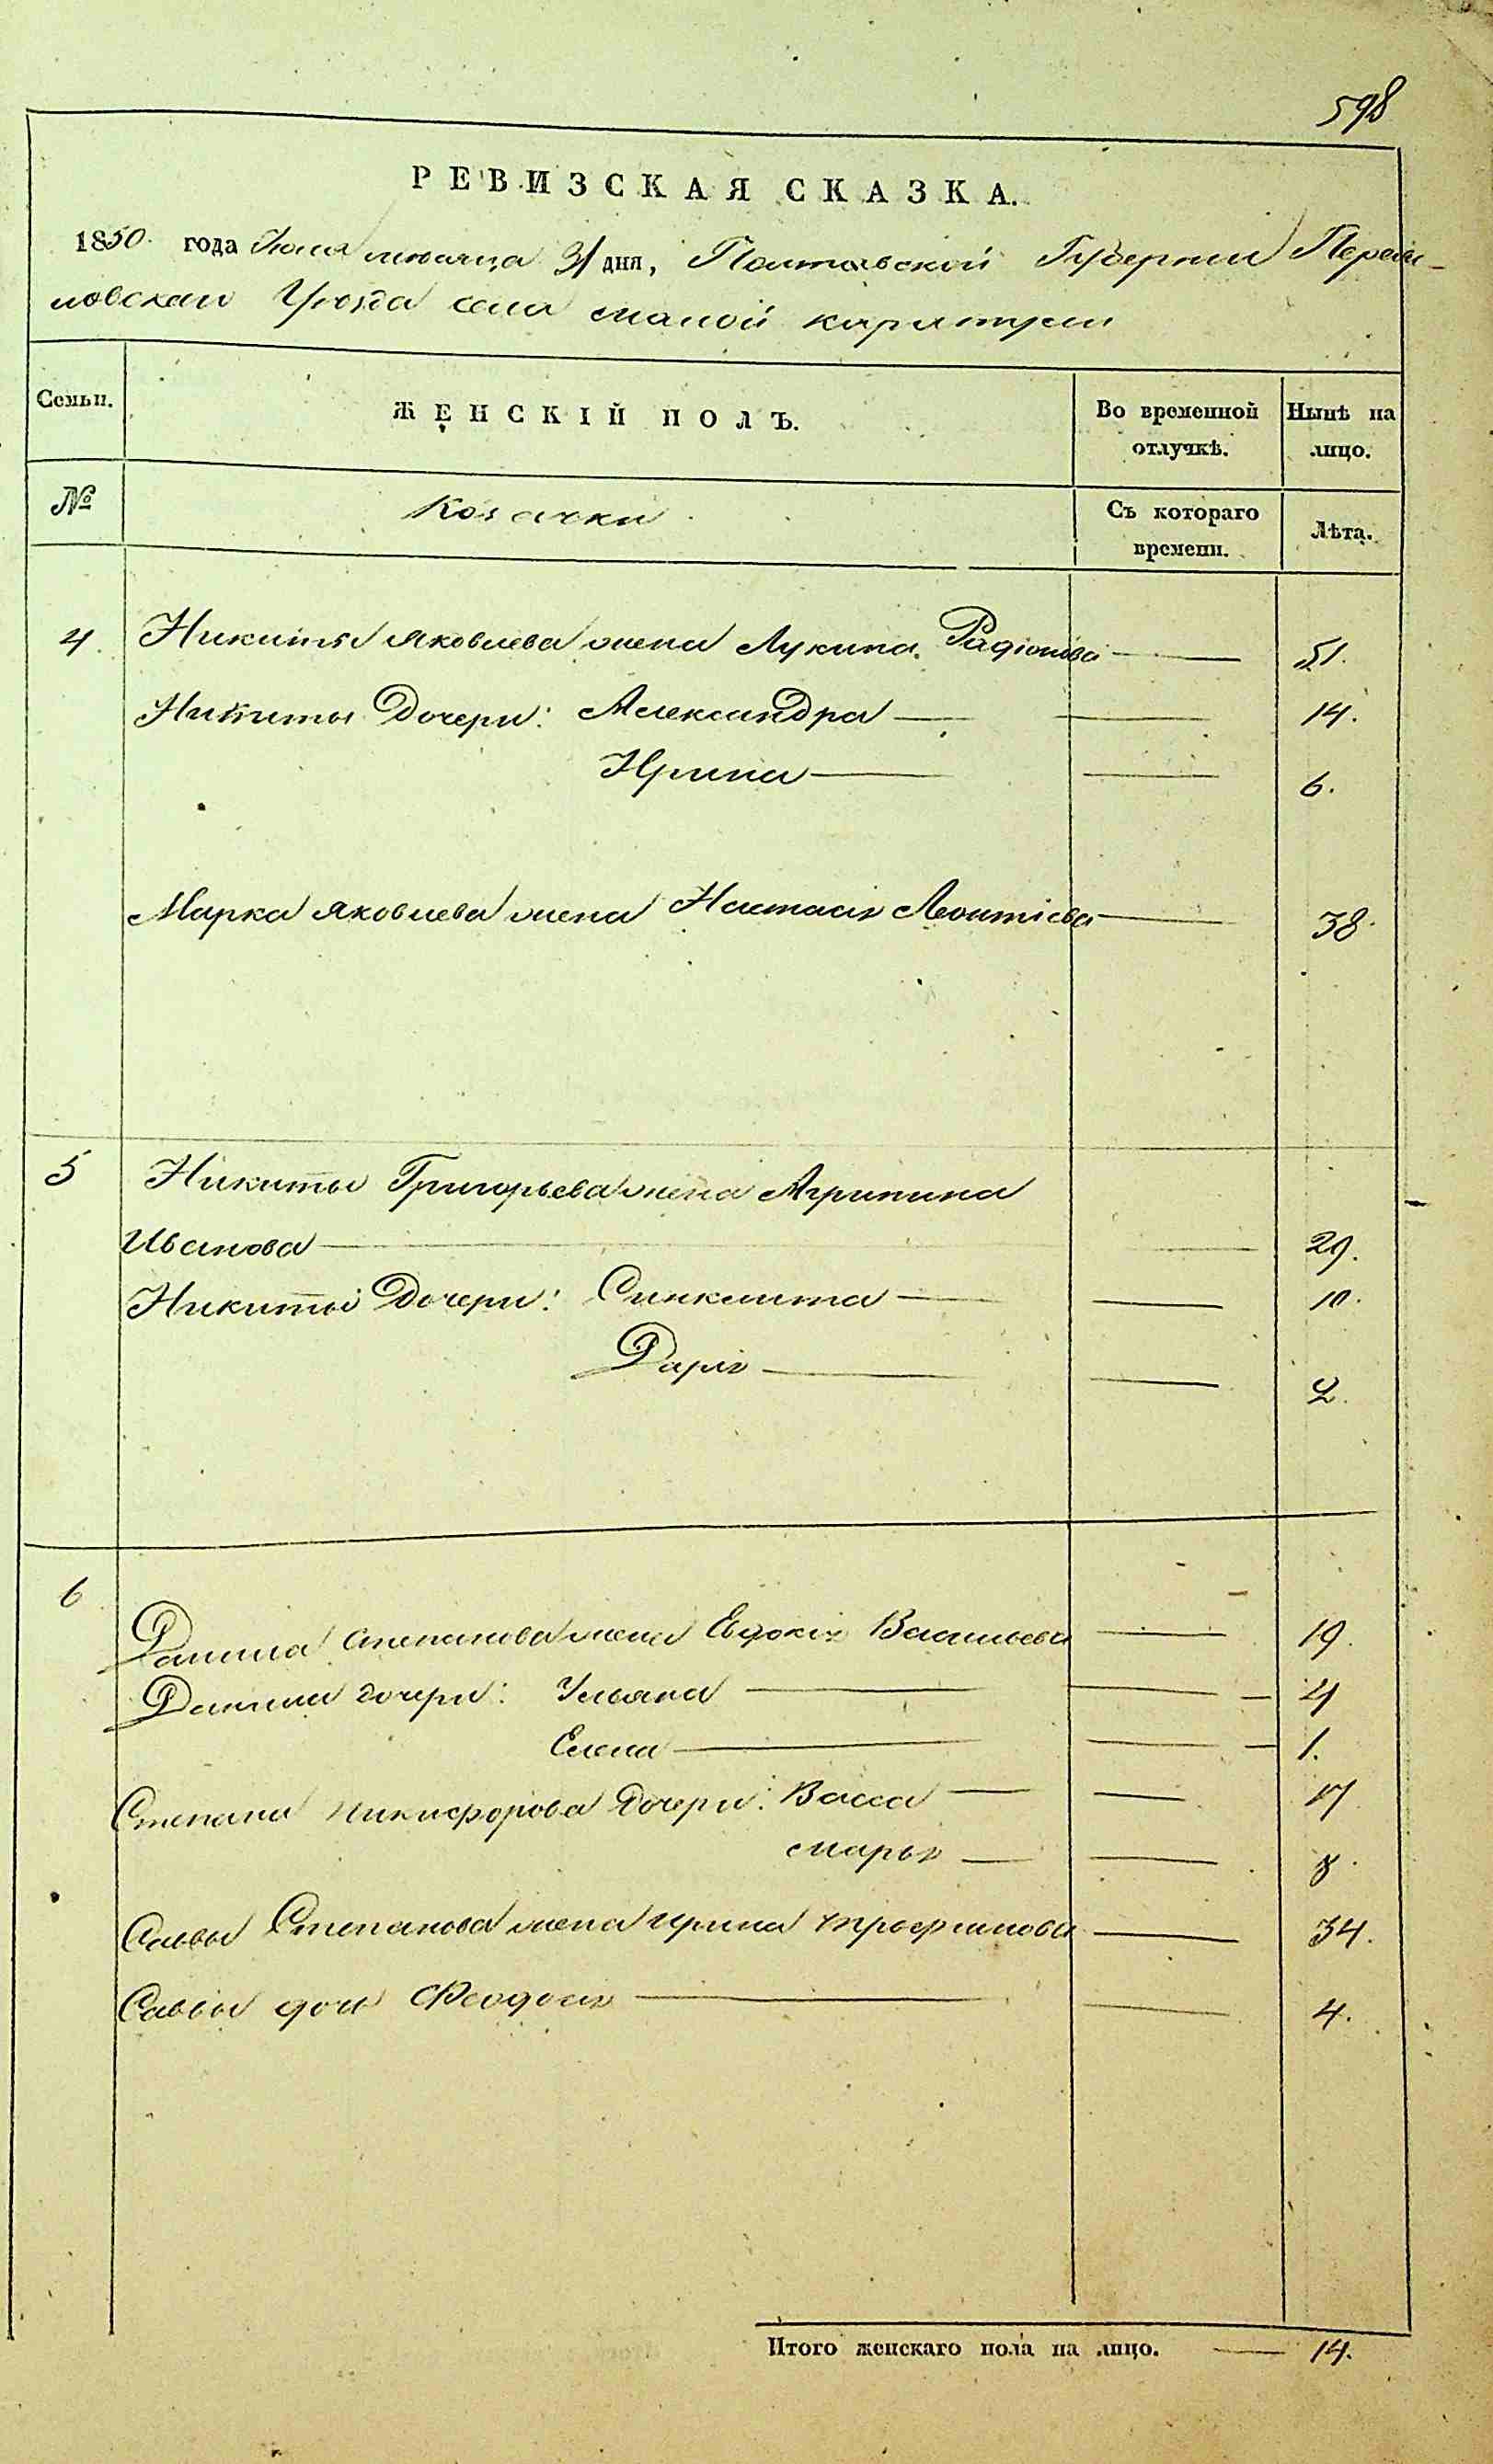 598
РЕВИЗСКАЯ СКАЗКА.
1850. года Июля месяца 31 дня, Полтавской Губернии Переяс-
ловскаго Уезда села малой каратули
Семьи. ЖЕНСКІЙ ПОЛЪ. Во временной отлучкѣ. Нынѣ на лицо.
№ Козачки Съ котораго времени. Лѣта.
4. Никиты Яковлева жена Лукина Радіонова — 51.
Никиты Дочери: Александра — — 14.
Ирина — — 6.
Марка Яковлева жена Настасія Леонтіева — 38.
5 Никиты Григорьева жена Агрипина
Иванова — — 29.
Никиты Дочери: Синклита — — 10.
Дарія — — 2.
6
Данила Степанова жена Евдокія Васильева — 19.
Данила дочери: Ульяна — — 4
Елена — — 1.
Степана Никифорова Дочери: Васса — — 17
Марья — — 8.
Савы Степанова жена Ирина Трофимова — 34.
Савы дочь Феодосія — — 4.
Итого женскаго пола на лицо. — 14.